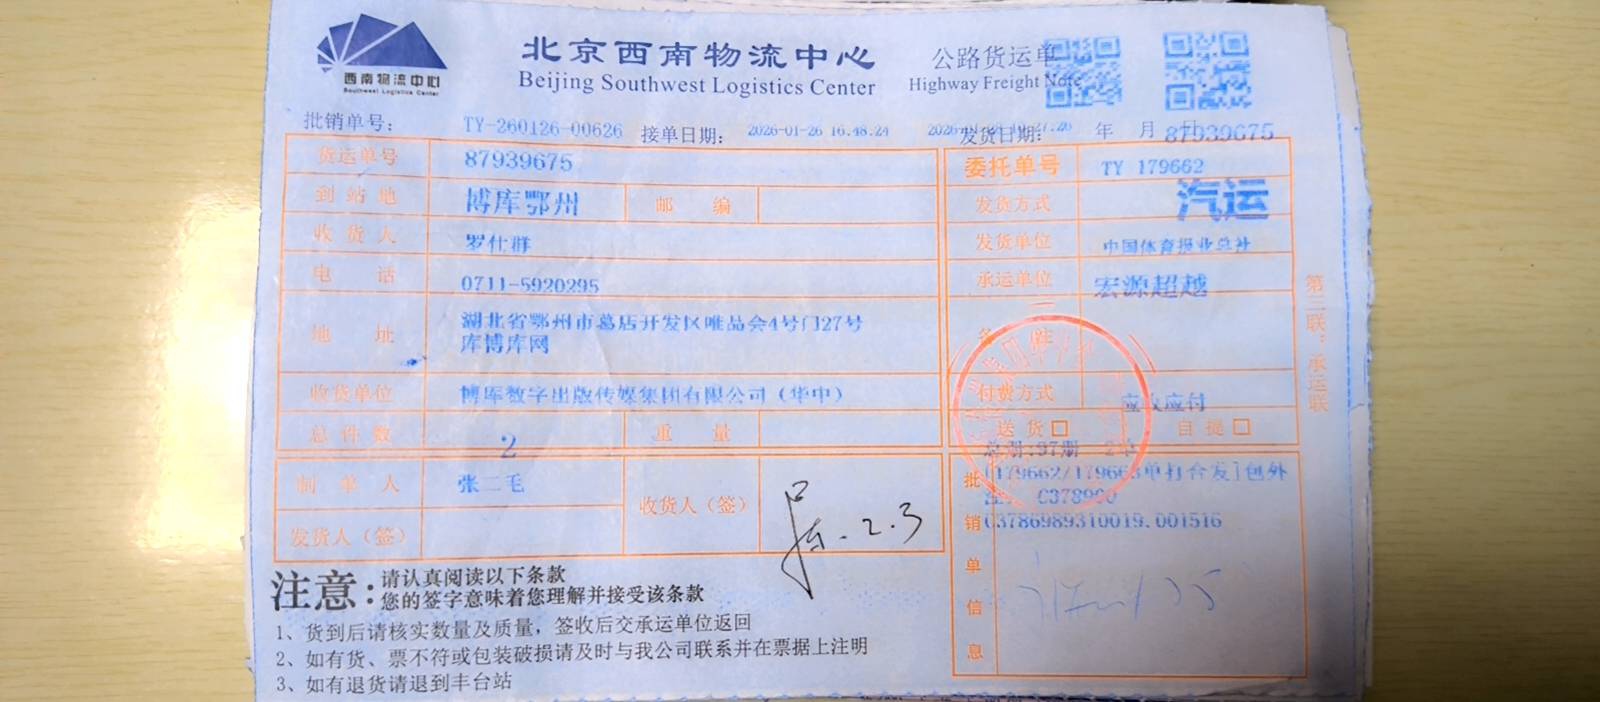 西南物流中心
Southwest Logistics Center
北京西南物流中心
Beijing Southwest Logistics Center
公路货运单
Highway Freight Note
批销单号： TY-260126-00626 接单日期： 2026-01-26 16.48.24 发货日期： 年 月 日 87939675
货运单号 87939675
委托单号 TY 179662
到站地 博库鄂州 邮编
发货方式 汽运
收货人 罗仕群
发货单位 中国体育报业总社
电话 0711-5920295
承运单位 宏源超越
地址 湖北省鄂州市葛店开发区唯品会4号门27号
库博库网
收货单位 博库数字出版传媒集团有限公司（华中）
付费方式 应收应付
总件数 2 重量
送货□ 自提□
总册:97册
制单人 张二毛
收货人（签） 2.3
发货人（签）
批销单信息
[179662/179663单打合发]包外
C378900
C3786989310019.001516
第三联：承运联
注意：请认真阅读以下条款
您的签字意味着您理解并接受该条款
1、货到后请核实数量及质量，签收后交承运单位返回
2、如有货、票不符或包装破损请及时与我公司联系并在票据上注明
3、如有退货请退到丰台站